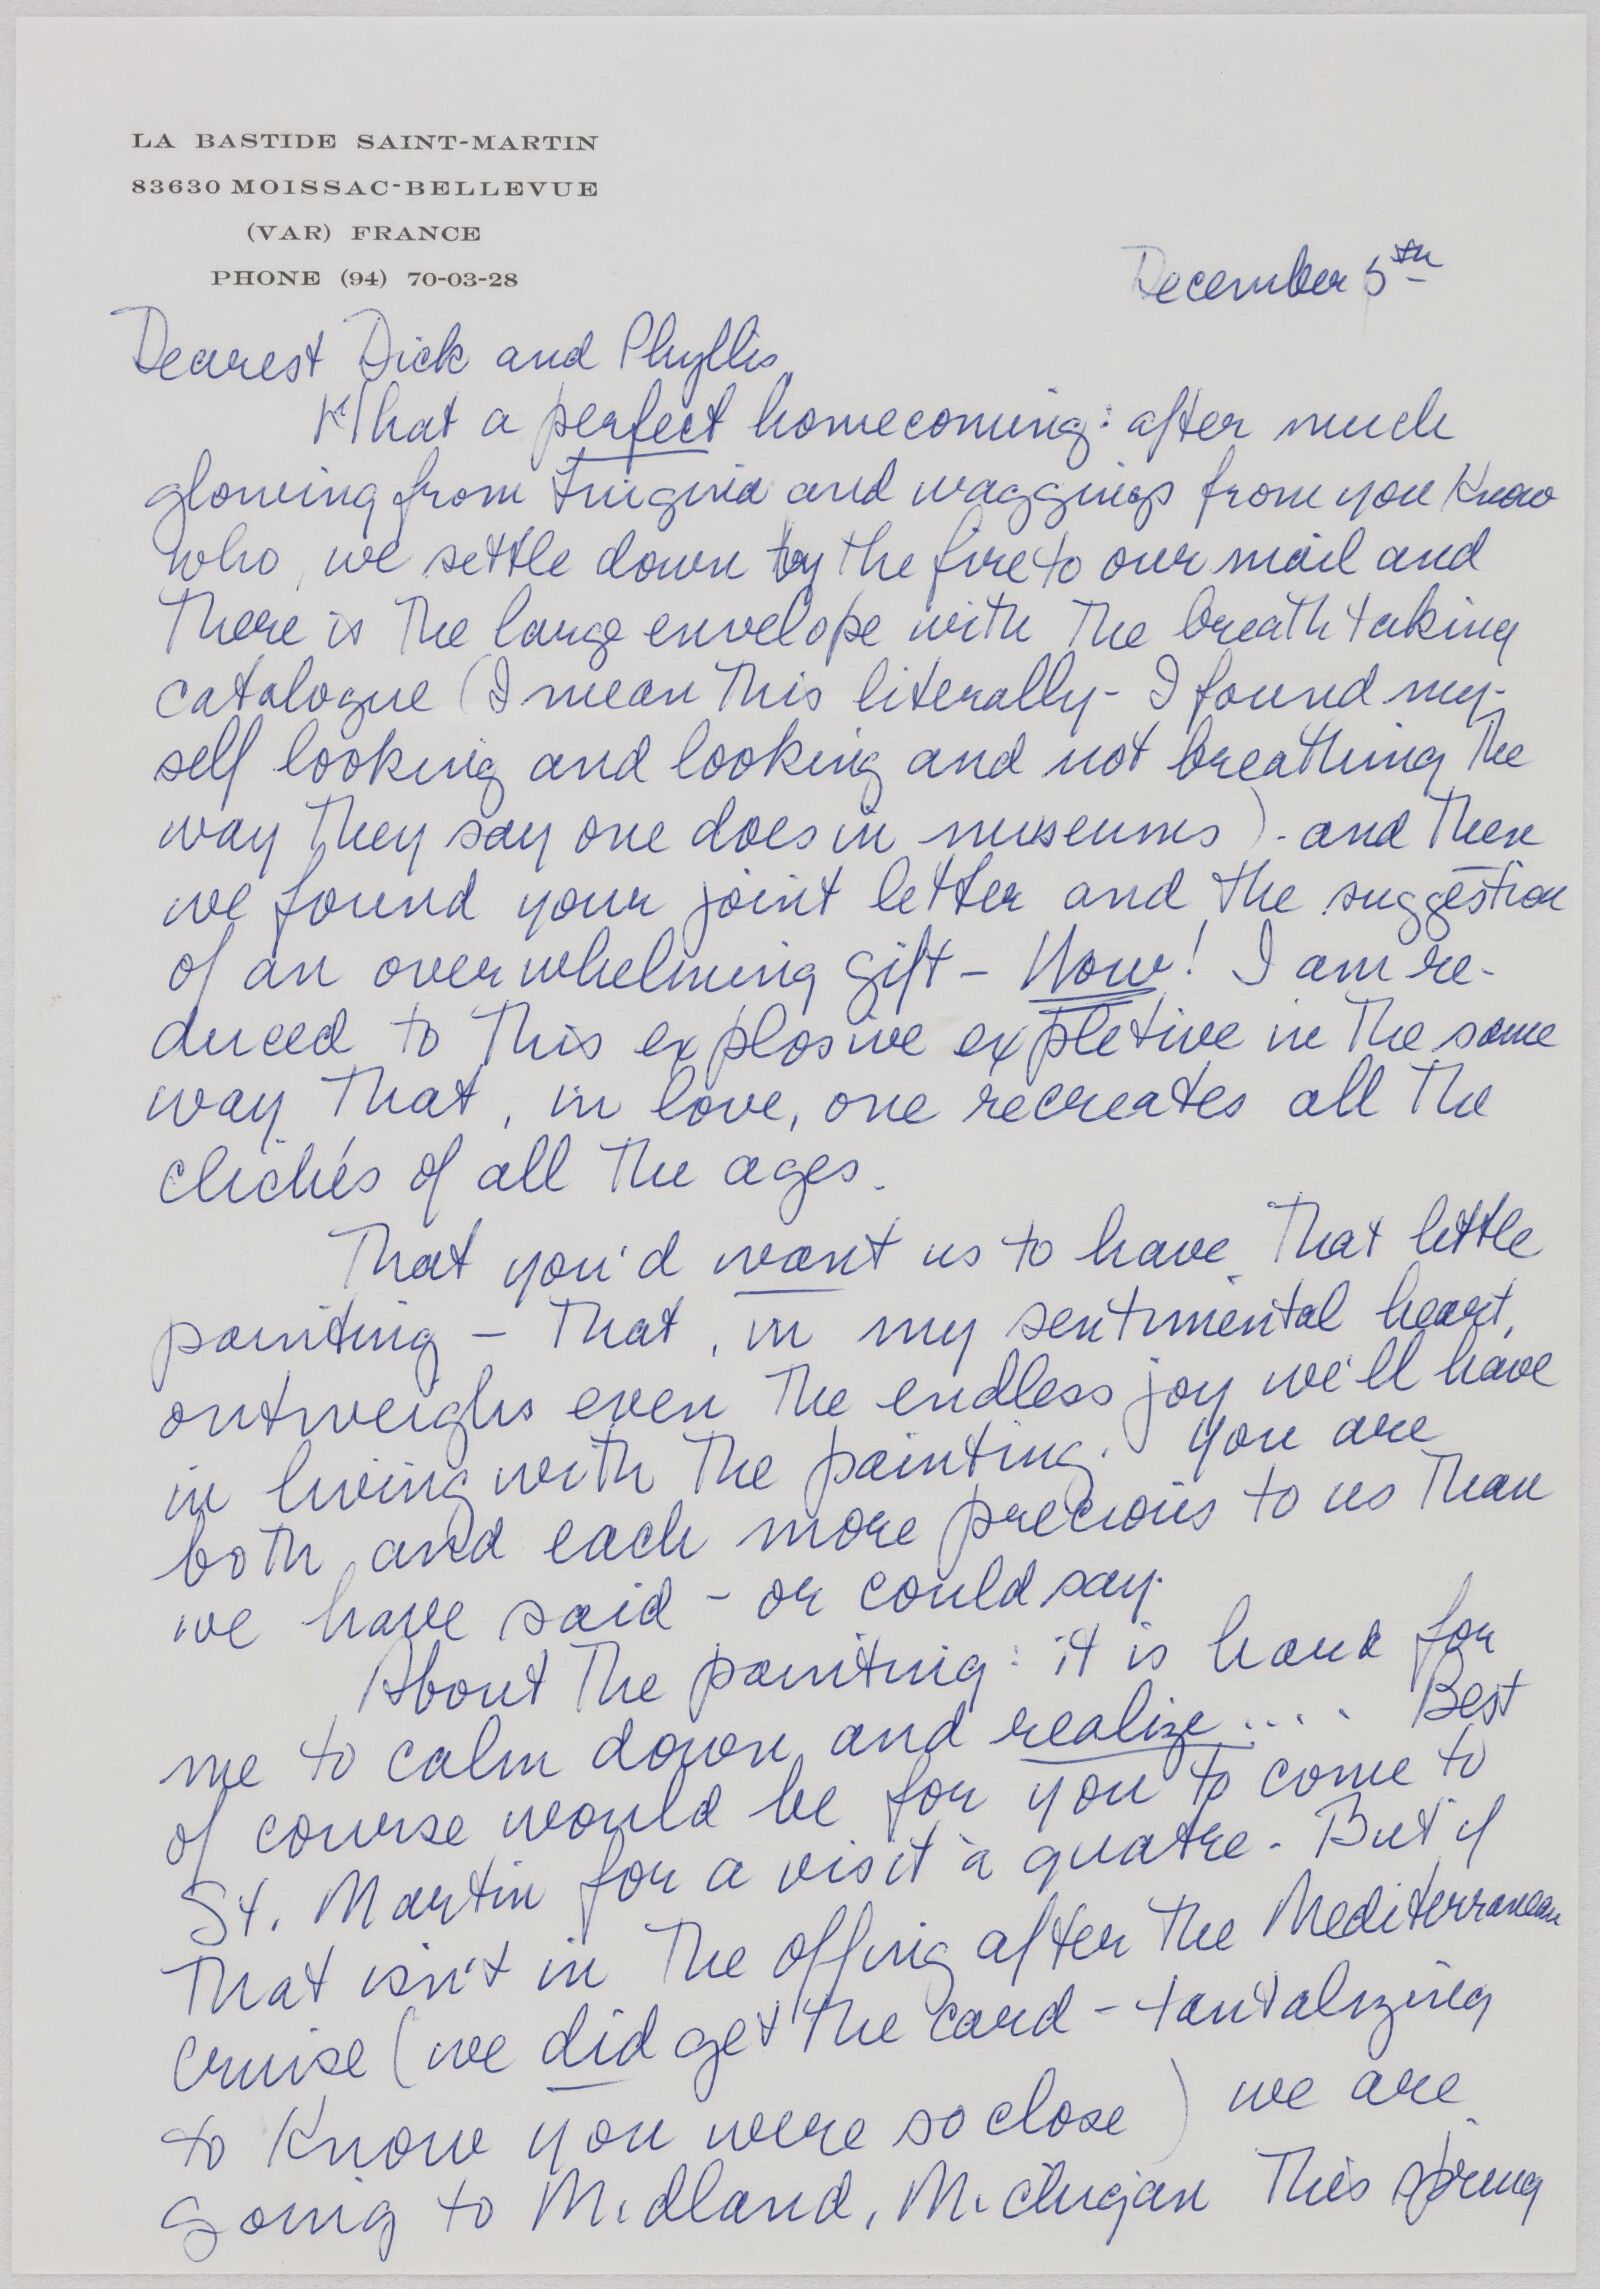 LA BASTIDE SAINT-MARTIN
83630 MOISSAC-BELLEVUE
(VAR) FRANCE
PHONE (94) 70-03-28
December 5th
Dearest Dick and Phyllis,
What a perfect homecoming: after much
glowing from and waggings from you know
who, we settle down by the fire to our mail and
there is the large envelope with the breathtaking
catalogue (I mean this literally - I found my-
self looking and looking and not breathing the
way they say one does in museums) - and then
we found your joint letter and the suggestion
of an overwhelming gift - Wow! I am re-
duced to this explosive expletive in the same
way that, in love, one recreates all the
clichés of all the ages.
That you'd want us to have that little
painting - that, in my sentimental heart,
outweighs even the endless joy we'll have
in living with the painting. You are
both and each more precious to us than
we have said - or could say.
About the painting: it is hard for
me to calm down and realize.... Best
of course would be for you to come to
St. Martin for a visit à quatre. But if
that isn't in the offing after the Mediterranean
cruise (we did get the card - tantalizing
to know you were so close) we are
going to Midland, Michigan this spring